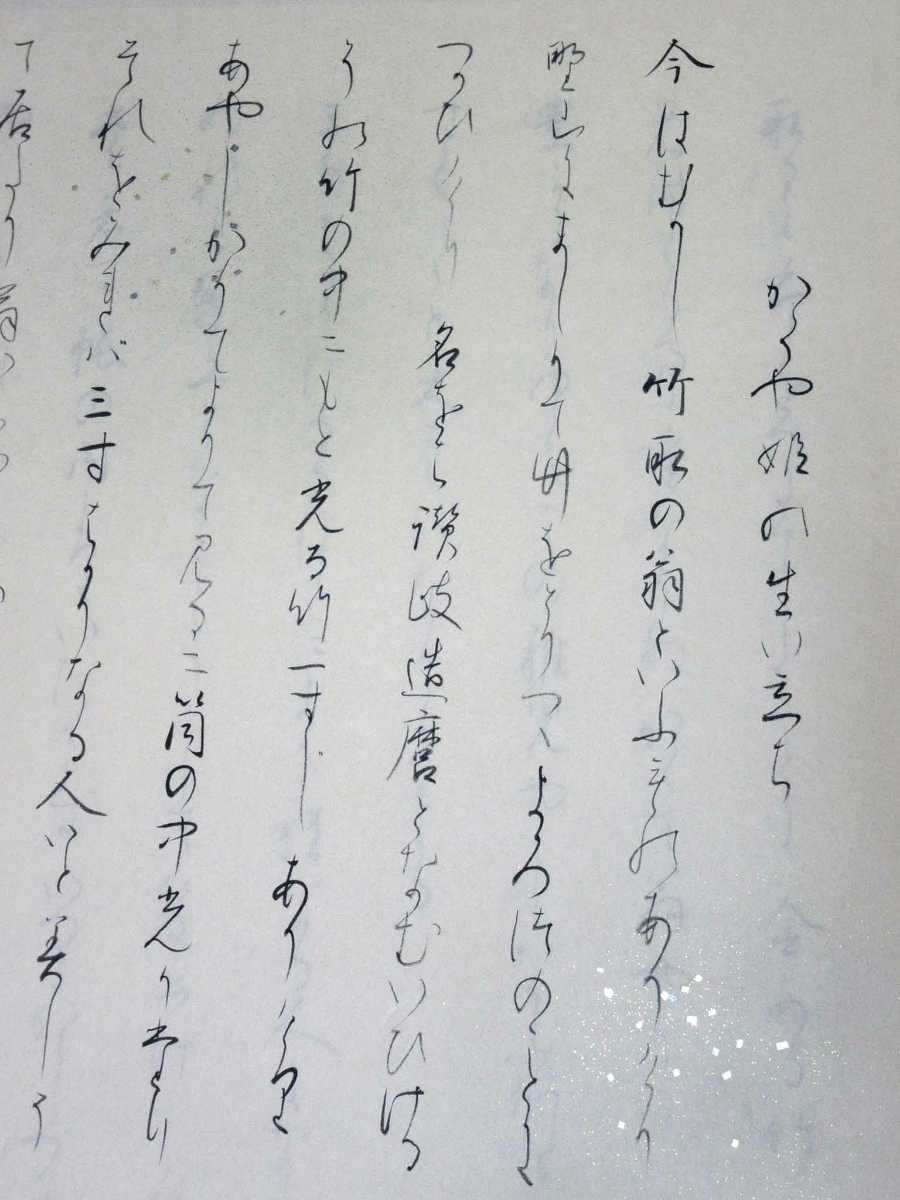 かぐや姫の生い立ち
今はむかし竹取の翁といふものありけり
野山にまじりて竹をとりつつよろづのことに
つかひけり名をば讃岐造麿となむいひける
その竹の中にもと光る竹一すじありけり
あやしがりてよりて見るに筒の中光りたり
それをみれば三寸ばかりなる人いと美しう
て居たり翁い